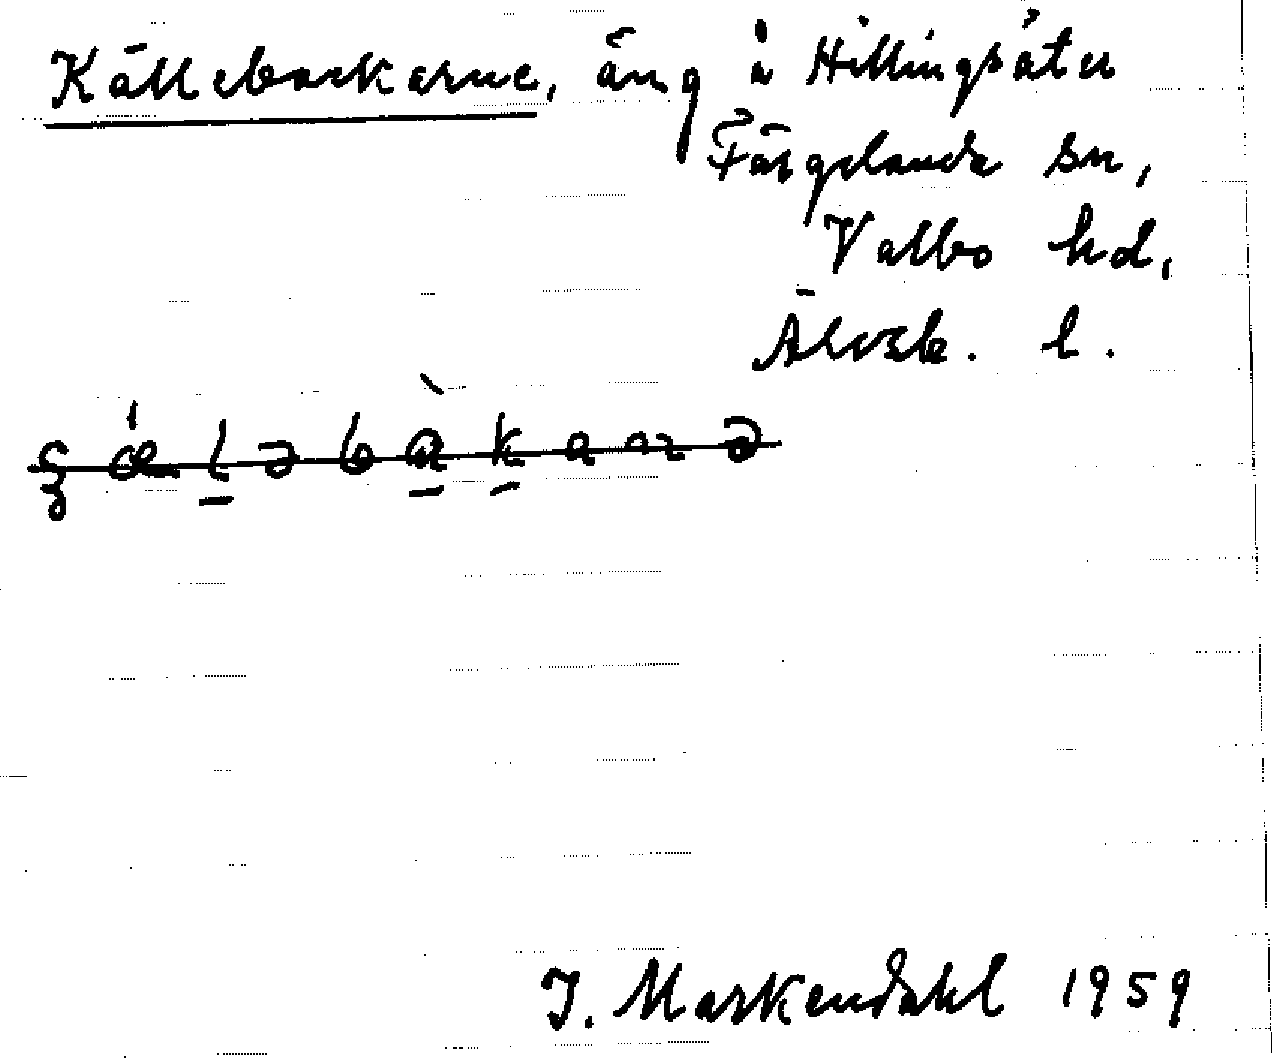 Källebackerne, äng å Hillingsäter
Färgelanda sn,
Valbo hd,
Älvsb. l.
I. Markendahl 1959